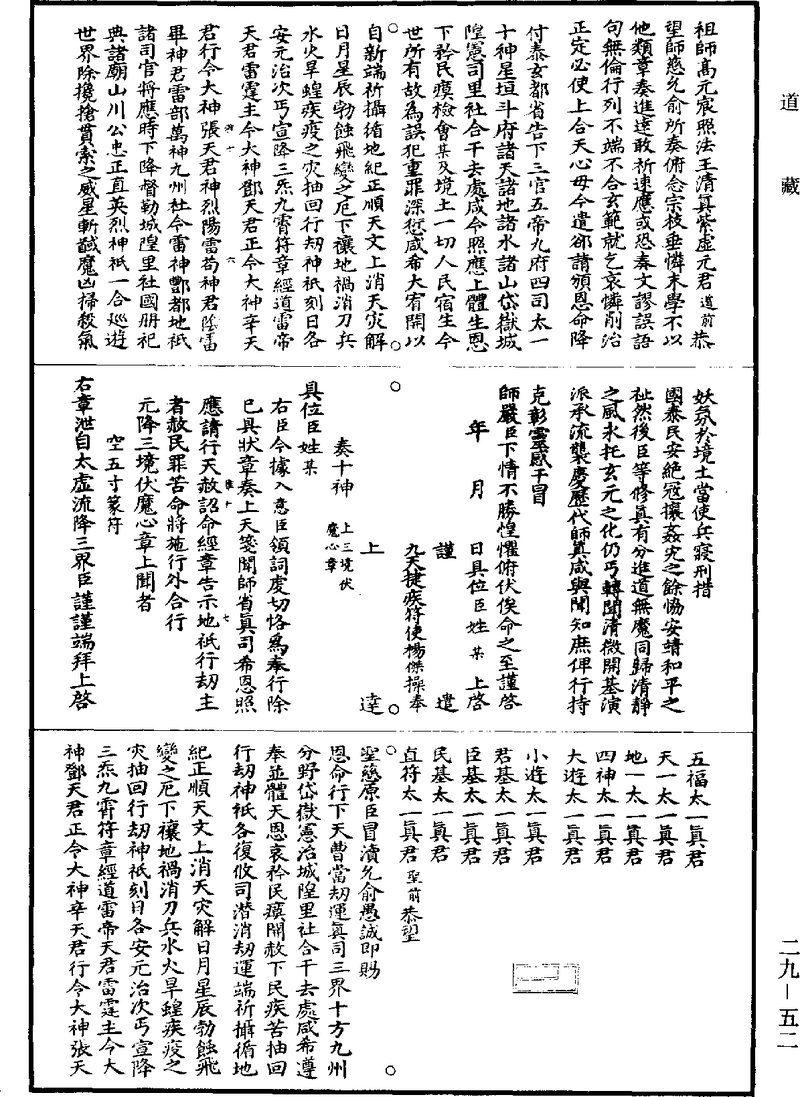 道藏
祖師高元宸照法王清眞紫虛元君道前恭
望師慈允俞所奏俯念宗枝垂憐末學不以
他類章奏進達敢祈速應或恐奏文謬誤語
句無倫行列不端不合玄範就乞哀憐削治
正定必使上合天心毋令遣郤請頒恩命降
付泰玄都省告下三官五帝九府四司太一
十神星垣斗府諸天諸地諸水諸山岱嶽城
隍憲司里社合干去處咸令照應上體生恩
下矜民瘼檢會某及境土一切人民宿生今
世所有故為誤犯重罪深愆咸希大宥開以
自新端祈攝循地紀正順天文上消天灾解
日月星辰勃蝕飛變之厄下禳地禍消刀兵
水火旱蝗疾疫之灾抽回行刼神祇刻日各
安元治次丐宣降三炁九霄符章經道雷帝
天君雷霆主令大神鄧天君正令大神辛天
君行令大神張天君神烈陽雷苟神君陰雷
畢神君雷部萬神九州社令雷神酆都地祇
諸司官將應時下降督勒城隍里社國册祀
典諸廟山川公忠正直英烈神祇一合廵遊
世界除攙搶貫索之威星斬馘魔凶掃殺氣
妖氛於境土當使兵寢刑措
國泰民安絶冦攘姦宄之餘恊安靖和平之
祉然後臣等修眞有分進道無魔同歸清靜
之風永托玄元之化仍丐轉聞清微開基演
派承流襲慶歷代師眞咸與聞知庶俾行持
克彰靈感干冒
師嚴臣下情不勝惶懼俯伏俟命之至謹啓
年 月 日具位臣姓某上啓
謹遣 九天捷疾符使楊傑操奉
上達
奏十神 上三境伏魔心章
具位臣姓某
右臣今據入意臣領詞虔切恪爲奉行除
巳具狀章奏上天箋聞師省眞司希恩照
應請行天赦詔命經章告示地祇行刼主
者赦民罪苦命將施行外合行
元降三境伏魔心章上聞者
空五寸篆符
右章泄自太虛流降三界臣謹謹端拜上啓
五福太一眞君
天一太一眞君
地一太一眞君
四神太一眞君
大遊太一眞君
小遊太一眞君
君基太一眞君
臣基太一眞君
民基太一眞君
直符太一眞君聖前恭望
聖慈原臣冒瀆允俞愚誠即賜
恩命行下天曹當刼運眞司三界十方九州
分野岱嶽憲治城隍里社合干去處咸希遵
奉並體天恩哀矜民瘼開赦下民疾苦抽回
行刼神祇各復攸司潜消刼運端祈攝循地
紀正順天文上消天灾解日月星辰勃蝕飛
變之厄下禳地禍消刀兵水火旱蝗疾疫之
灾抽回行刼神祇刻日各安元治次丐宣降
三炁九霄符章經道雷帝天君雷霆主令大
神鄧天君正令大神辛天君行令大神張天
二九－五二